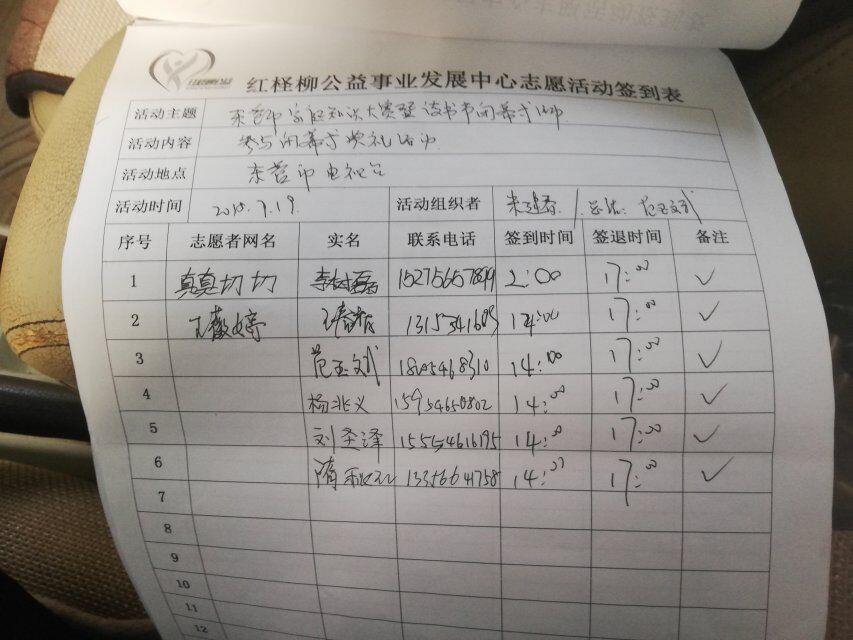 红柽柳公益事业发展中心志愿活动签到表
活动主题 东营市家庭知识大赛暨读书节闭幕式
活动内容 参与闭幕式颁礼活动
活动地点 东营市电视台
活动时间 7.19. 活动组织者 总结: 范玉文
序号 志愿者网名 实名 联系电话 签到时间 签退时间 备注
1 真真切切 李树磊 2:00 17:00 ✓
2 14:00 17:00 ✓
3 范玉斌 14:00 17:00 ✓
4 杨兆义 15954650802 14:00 17:00 ✓
5 刘圣泽 15554616195 14:0 17:00 ✓
6 隋 13356641758 14: 17:00 ✓
7
8
9
10
11
12